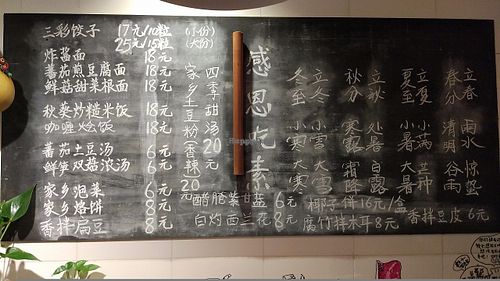 三彩饺子 17元/10粒 (小份)
25元/15粒 (大份)
炸酱面 18元
蕃茄煎豆腐面 18元
鲜菇甜菜根面 18元
秋葵炒糙米饭 18元
咖喱烩饭 18元
蕃茄土豆汤 6元
鲜笋双菇浓汤 6元
家乡泡菜 6元
家乡烙饼 8元
香拌扁豆 8元
四季甜汤20元
家乡土豆粉(香辣)20元
感恩吃素
立春 雨水 惊蛰
春分 清明 谷雨
立夏 小满 芒种
夏至 小暑 大暑
立秋 处暑 白露
秋分 寒露 霜降
立冬 小雪 大雪
冬至 小寒 大寒
醋脆紫甘蓝 6元
白灼西兰花 8元
椰子饼16元/盒
腐竹拌木耳8元
香拌豆皮6元